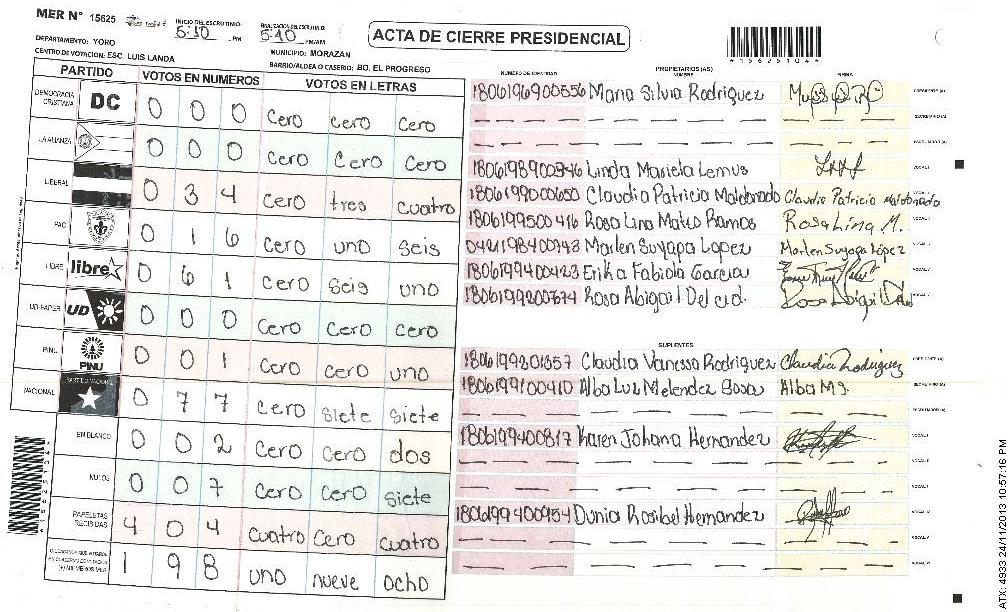 MER Nº 15625
INICIO DEL ESCRUTINIO: 5:10 PM
FINALIZACION DEL ESCRUTINIO: 5:40 PM/AM
ACTA DE CIERRE PRESIDENCIAL
*156251044*
DEPARTAMENTO: YORO
MUNICIPIO: MORAZAN
CENTRO DE VOTACION: ESC. LUIS LANDA
BARRIO/ALDEA O CASERIO: BO. EL PROGRESO
PARTIDO VOTOS EN NUMEROS VOTOS EN LETRAS
DEMOCRACIA CRISTIANA DC 0 0 0 cero cero cero
LA ALIANZA 0 0 0 cero cero cero
LIBERAL 0 3 4 cero tres cuatro
PAC 0 1 6 cero uno seis
LIBRE libre 0 6 1 cero seis uno
UD-FAPER UD 0 0 0 cero cero cero
PINU PINU 0 0 1 cero cero uno
NACIONAL PARTIDO NACIONAL 0 7 7 cero siete siete
EN BLANCO 0 0 2 cero cero dos
NULOS 0 0 7 cero cero siete
PAPELETAS RECIBIDAS 4 0 4 cuatro cero cuatro
1 9 8 uno nueve ocho
PROPIETARIOS (AS)
NUMERO DE IDENTIDAD NOMBRE FIRMA
1806196900556 Maria Silvia Rodriguez PRESIDENTE (A)
SECRETARIO (A)
ESCRUTADOR (A)
1806198900346 Linda Mariela Lemus VOCAL I
1806199000650 Claudia Patricia Maldonado Claudia Patricia Maldonado
1806199500416 Rosa Lina Mateo Ramos Rosa Lina M.
0421198400343 Marlen Suyapa Lopez Marlen Suyapa López
1806199400423 Erika Fabiola Garcia
1806199200674 Rosa Abigail Del cid.
SUPLENTES
1806199201357 Claudia Vanessa Rodriguez Claudia Rodriguez PRESIDENTE (A)
1806199100410 Alba Luz Melendez Sosa Alba MS. SECRETARIO (A)
ESCRUTADOR (A)
1806199400817 Karen Johana Hernandez VOCAL I
1806199400954 Dunia Rosibel Hernandez
ATX: 4933 24/11/2013 10:57:16 PM